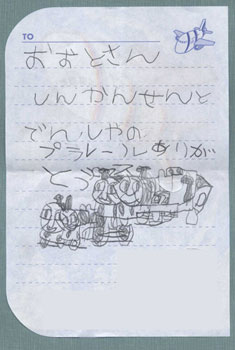 TO
おおとさん
しんかんせんと
でんしやの
プラレールありが
とう